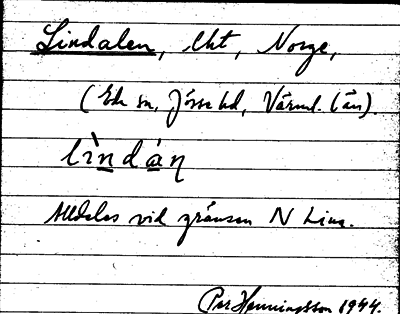 Lindalen, Ukt, Norge,
(Eda sn, Jösse hd, Värml. län).
lìndán
Alldeles vid gränsen N Lius.
Per Henningsson 1944.